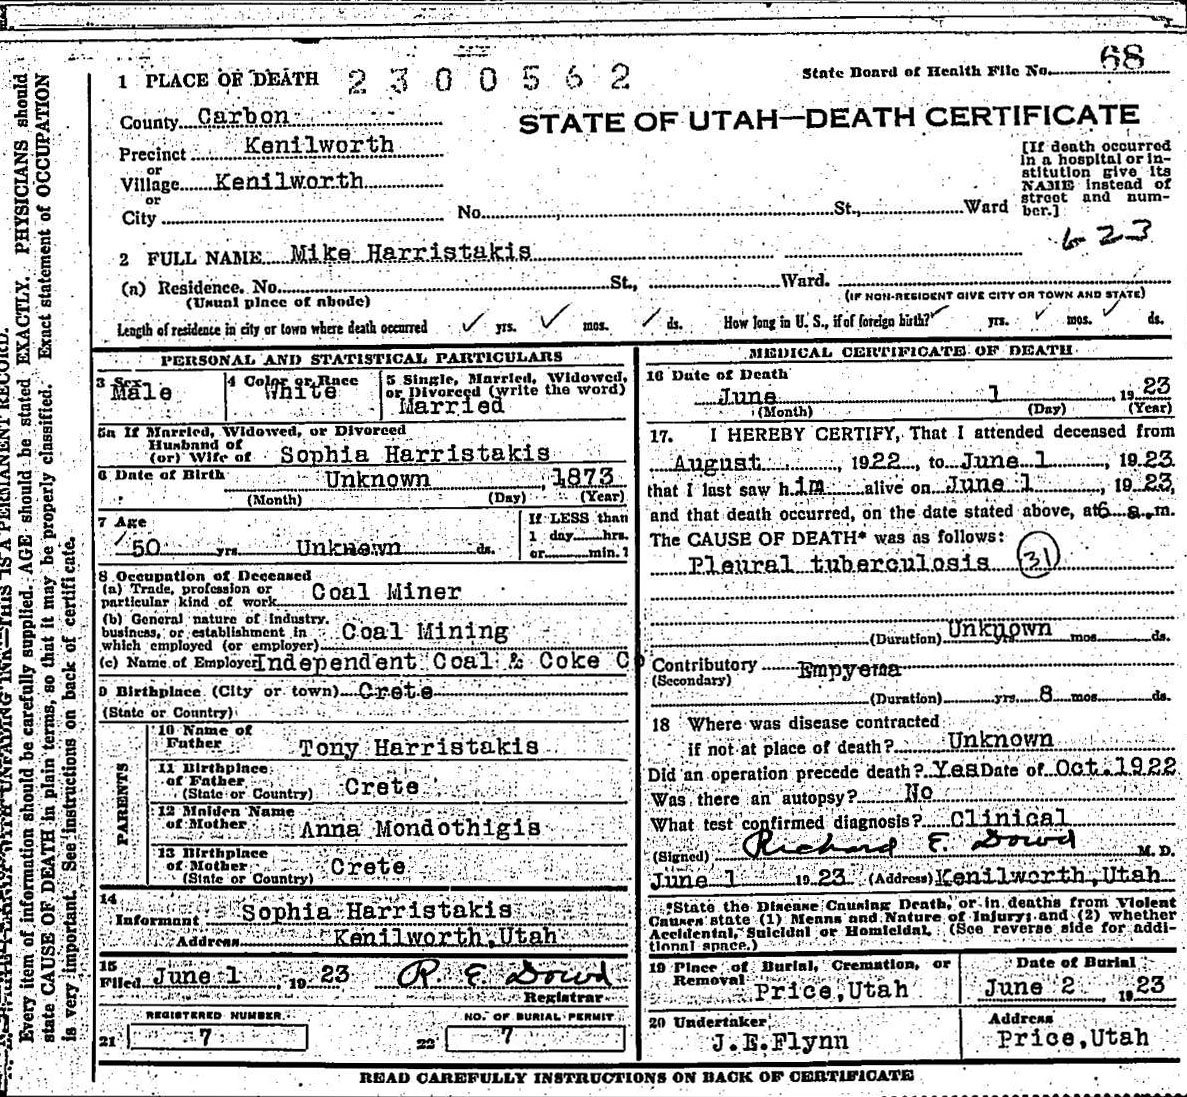 68
State Board of Health File No.
1 PLACE OF DEATH 2300562
STATE OF UTAH—DEATH CERTIFICATE
County Carbon
Precinct Kenilworth
or
Village Kenilworth
or
City No. St., Ward
[If death occurred
in a hospital or in-
stitution give its
NAME instead of
street and num-
ber.]
6-23
2 FULL NAME Mike Harristakis
(a) Residence. No. St., Ward.
(Usual place of abode) (IF NON-RESIDENT GIVE CITY OR TOWN AND STATE)
Length of residence in city or town where death occurred ✓ yrs. ✓ mos. ✓ ds. How long in U. S., if of foreign birth? ✓ yrs. ✓ mos. ✓ ds.
PERSONAL AND STATISTICAL PARTICULARS
3 Sex Male
4 Color or Race White
5 Single, Married, Widowed,
or Divorced (write the word)
Married
5a If Married, Widowed, or Divorced
Husband of
(or) Wife of Sophia Harristakis
6 Date of Birth Unknown , 1873
(Month) (Day) (Year)
7 Age
50 yrs. Unknown ds.
If LESS than
1 day hrs.
or min.
8 Occupation of Deceased
(a) Trade, profession or
particular kind of work Coal Miner
(b) General nature of industry,
business, or establishment in
which employed (or employer) Coal Mining
(c) Name of Employer Independent Coal & Coke Co
9 Birthplace (City or town) Crete
(State or Country)
PARENTS
10 Name of
Father Tony Harristakis
11 Birthplace
of Father
(State or Country) Crete
12 Maiden Name
of Mother Anna Mondothigis
13 Birthplace
of Mother
(State or Country) Crete
14
Informant Sophia Harristakis
Address Kenilworth, Utah
15
Filed June 1, 1923 R. E. Dowd
Registrar
REGISTERED NUMBER.
21 7
NO. OF BURIAL PERMIT
22 7
MEDICAL CERTIFICATE OF DEATH
16 Date of Death
June 1, 1923
(Month) (Day) (Year)
17. I HEREBY CERTIFY, That I attended deceased from
August , 1922, to June 1, 1923
that I last saw him alive on June 1, 1923,
and that death occurred, on the date stated above, at 6 a.m.
The CAUSE OF DEATH* was as follows:
Pleural tuberculosis 31
(Duration) Unknown yrs. mos. ds.
Contributory Empyema
(Secondary)
(Duration) yrs. 8 mos. ds.
18 Where was disease contracted
if not at place of death? Unknown
Did an operation precede death? Yes Date of Oct. 1922
Was there an autopsy? No
What test confirmed diagnosis? Clinical
(Signed) Richard E. Dowd M. D.
June 1 1923 (Address) Kenilworth, Utah
*State the Disease Causing Death, or in deaths from Violent
Causes state (1) Means and Nature of Injury; and (2) whether
Accidental, Suicidal or Homicidal. (See reverse side for addi-
tional space.)
19 Place of Burial, Cremation, or
Removal Price, Utah
Date of Burial
June 2, 1923
20 Undertaker
J.E.Flynn
Address
Price, Utah
READ CAREFULLY INSTRUCTIONS ON BACK OF CERTIFICATE
THIS IS A PERMANENT RECORD.
Every item of information should be carefully supplied. AGE should be stated EXACTLY. PHYSICIANS should
state CAUSE OF DEATH in plain terms, so that it may be properly classified. Exact statement of OCCUPATION
is very important. See instructions on back of certificate.